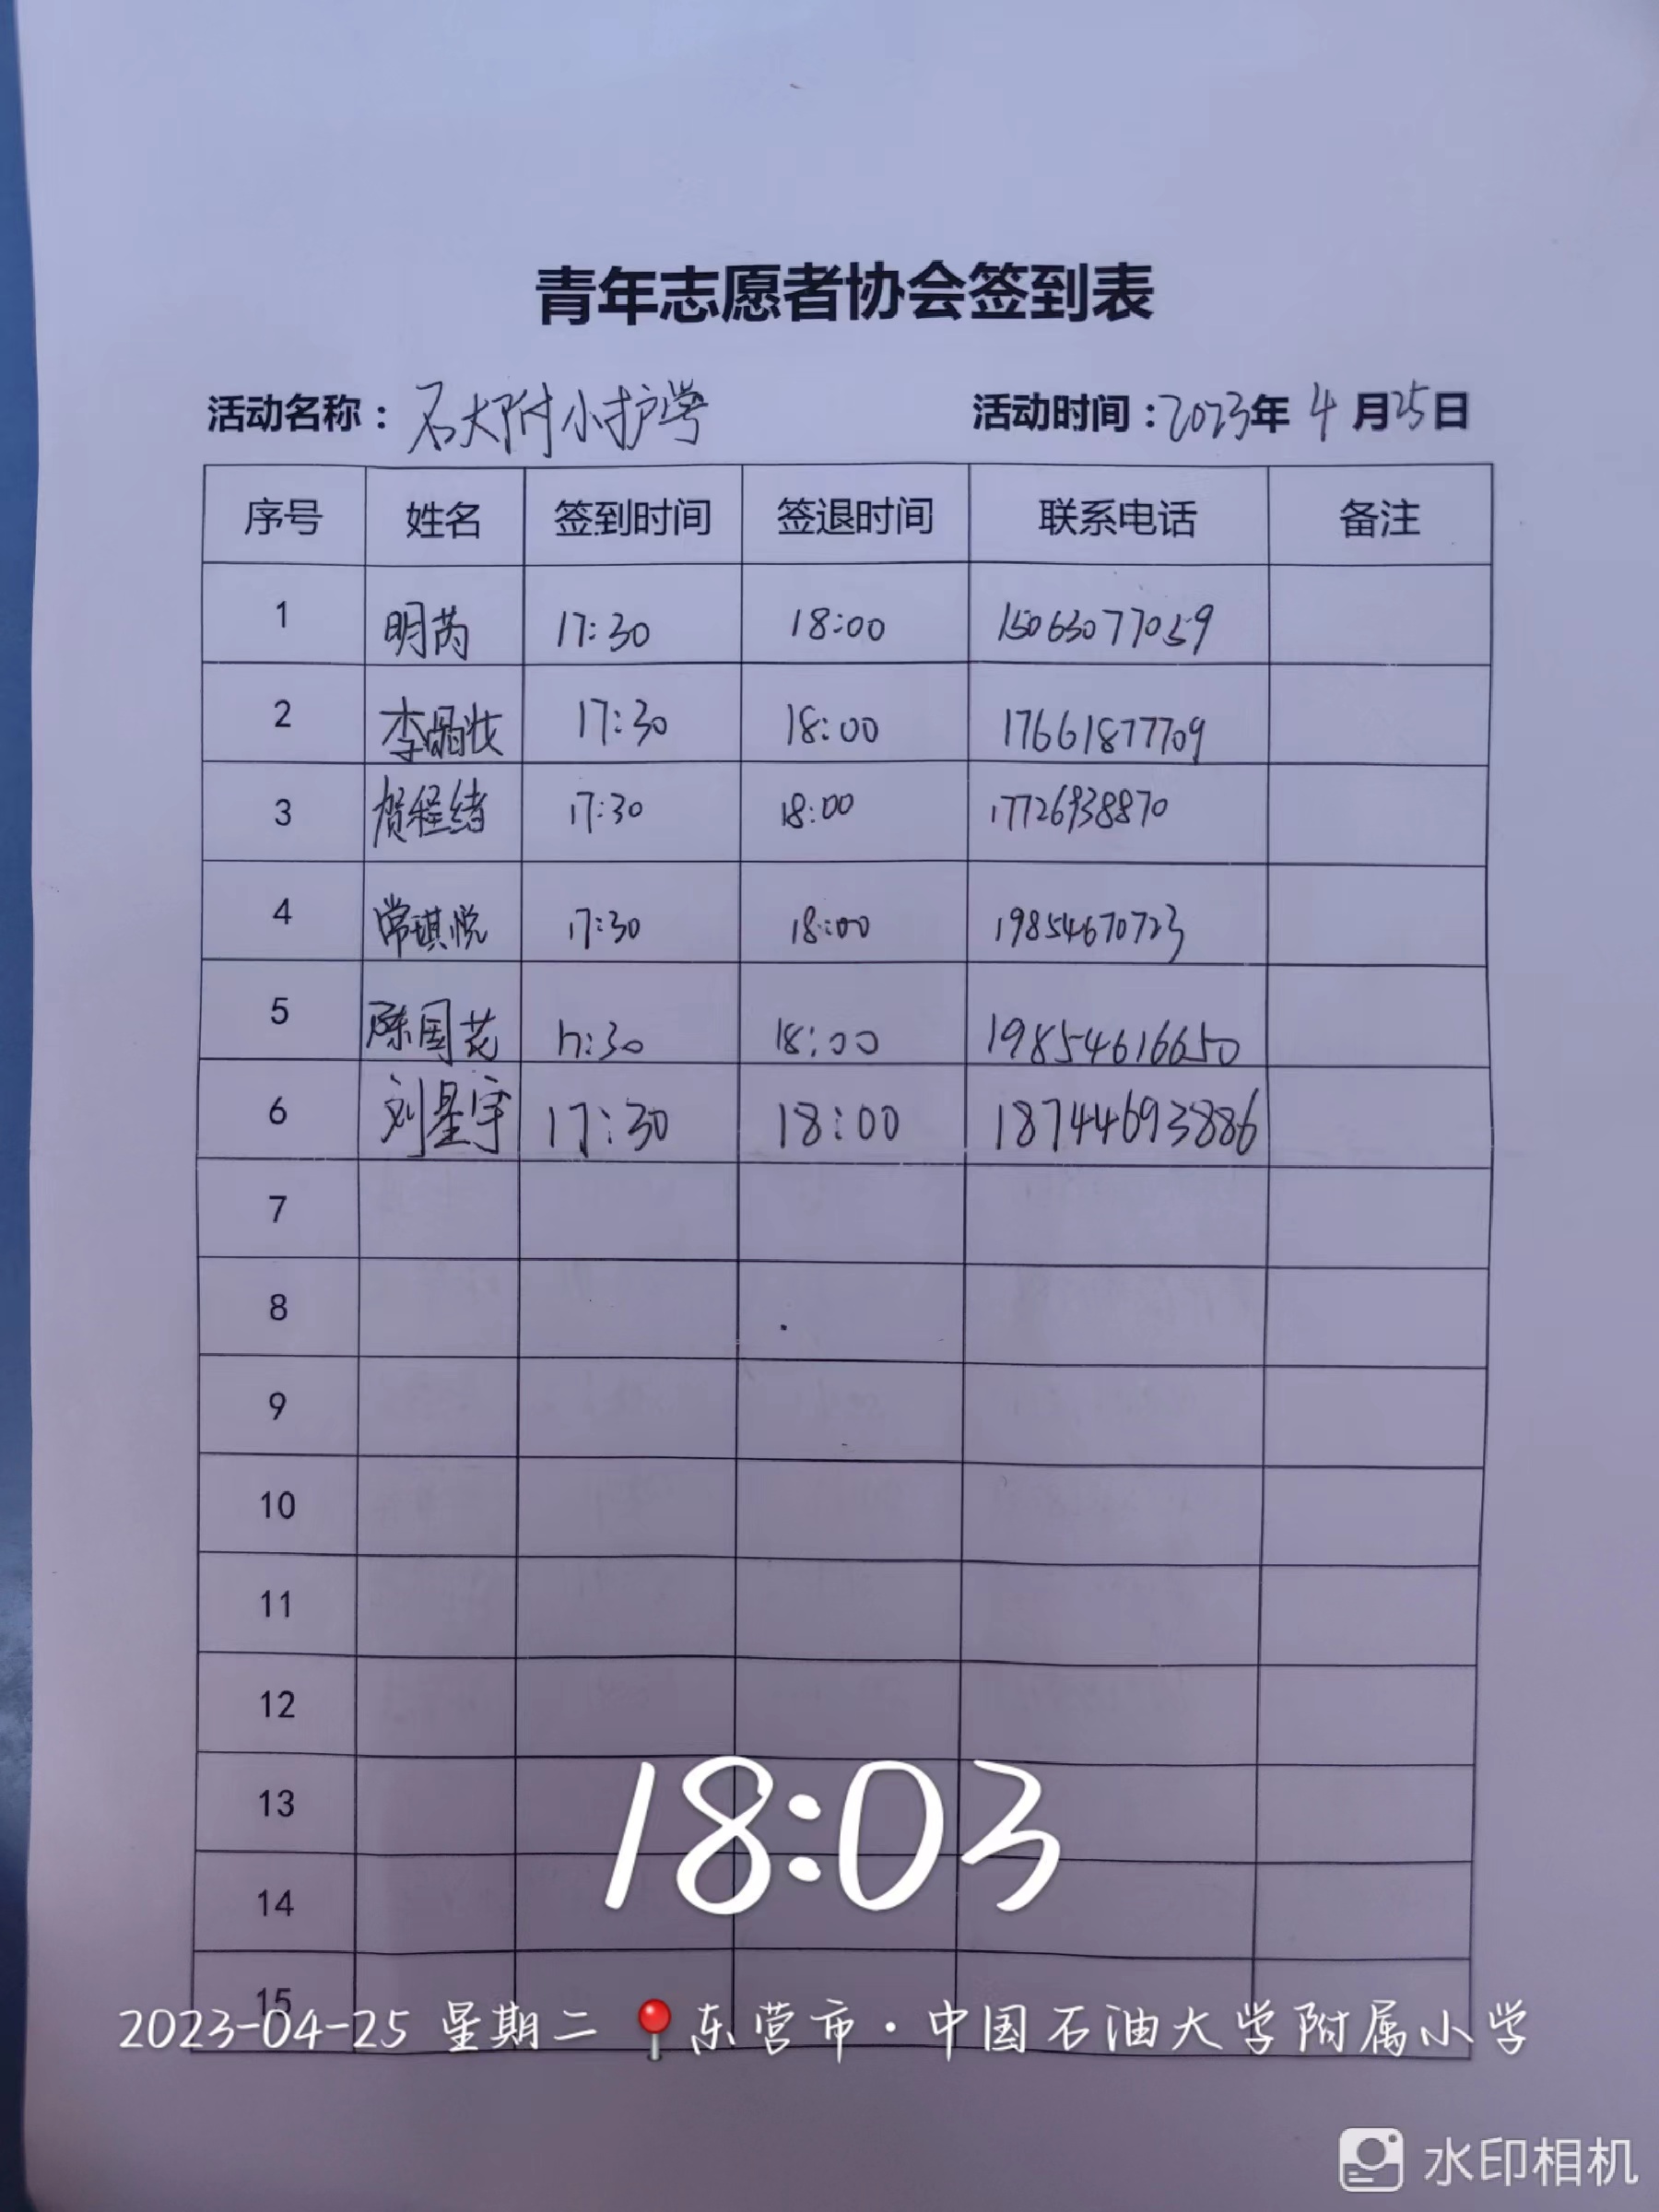 青年志愿者协会签到表
活动名称：石大附小护学 活动时间：2023年4月25日
序号 姓名 签到时间 签退时间 联系电话 备注
1 明芮 17:30 18:00 15063077059
2 李晶妆 17:30 18:00 17661877709
3 贺程绪 17:30 18:00 17726938870
4 常琪悦 17:30 18:00 19854670723
5 陈周花 17:30 18:00 19854616650
6 刘星宇 17:30 18:00 18744693886
7
8
9
10
11
12
13
14
15
18:03
2023-04-25 星期二 东营市·中国石油大学附属小学
水印相机